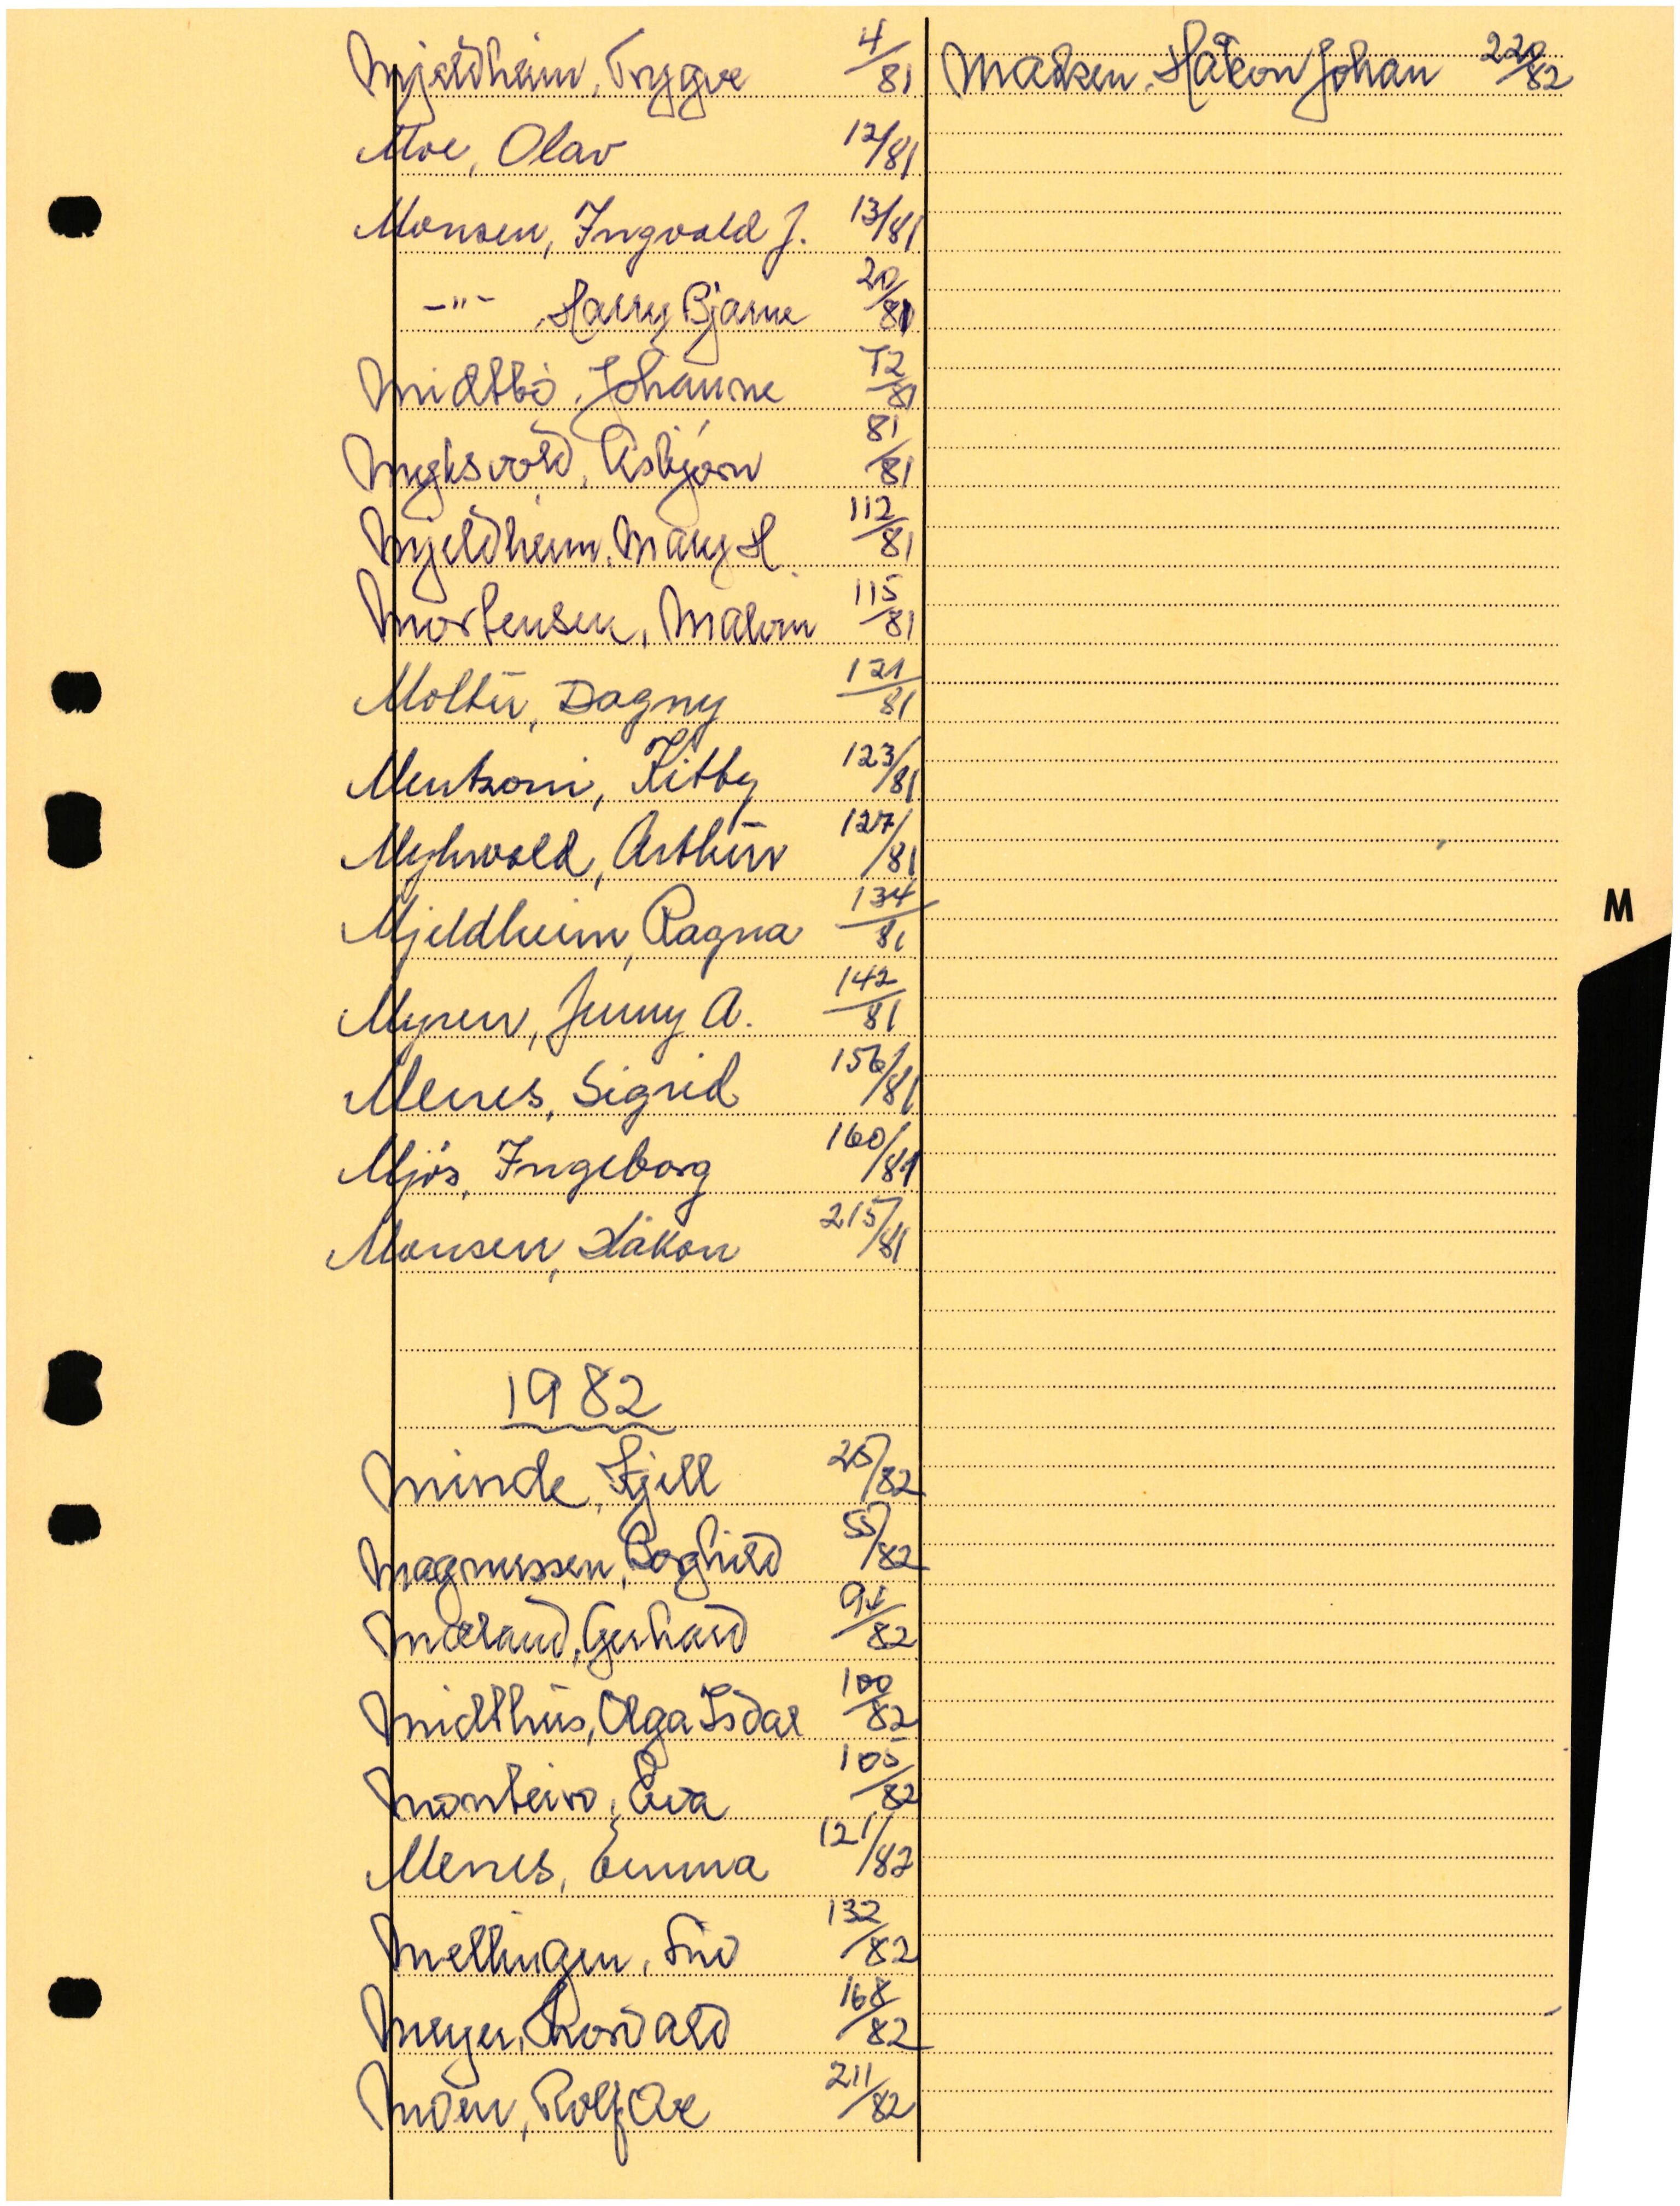 Mjeldheim, Trygve 4/81
Moe, Olav 12/81
Monsen, Ingvald J. 13/81
-"- , Harry Bjarne 20/81
Midtbö, Johanne 72/81
Myksvold, Asbjörn 81/81
Mjeldheim, Mary H. 112/81
Mortensen, Malvin 115/81
Moltu, Dagny 121/81
Mentzoni, Kitty 123/81
Myhrvold, Arthur 127/81
Mjeldheim, Ragna 134/81
Myren, Jenny A. 142/81
Menes, Sigrid 156/81
Mjös, Ingeborg 160/81
Monsen, Håkon 215/81
1982
Minde, Kjell 25/82
Magnussen, Borghild 55/82
Mæland, Gerhard 94/82
Midthus, Olga Isdal 100/82
Monteiro, Eva 105/82
Menes, Emma 121/82
Mellingen, Siv 132/82
Meyer, Thorvald 168/82
Moen, Rolf Are 211/82
Madsen, Håkon Johan 220/82
M